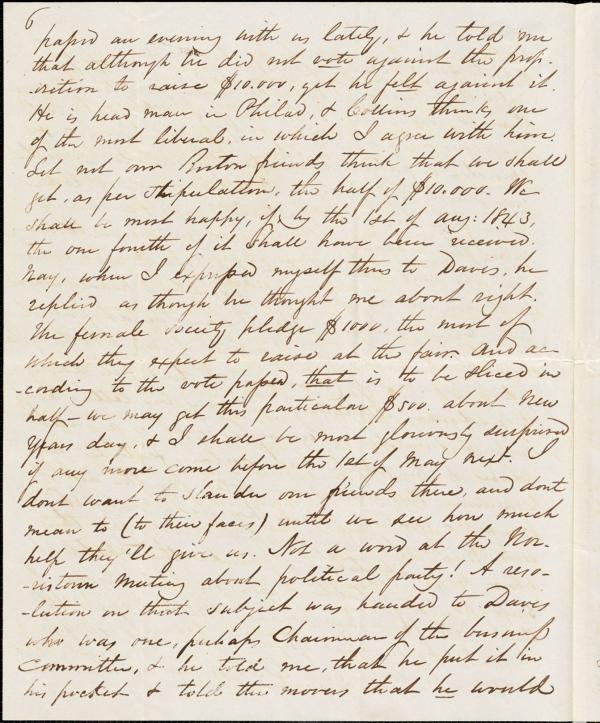 6
passed an evening with us lately, & he told me
that although he did not vote against the prop-
-osition to raise $10.000, yet he felt against it.
He is head man in Philad, & Collins thinks one
of the most liberal, in which I agree with him.
Let not our Boston friends think that we shall
get, as per stipulation, the half of $10.000. We
shall be most happy, if by the 1st of Aug: 1843,
the one fourth of it shall have been received.
Nay, when I expressed myself thus to Davis, he
replied as though he thought me about right.
The female society pledge $1000, the most of
which they expect to raise at the fair. And ac-
-cording to the vote passed, that is to be sliced in
half - we may get this particular $500. about New
Years day, & I shall be most gloriously surprised
if any more come before the 1st of May next. I
dont want to slander our friends there, and dont
mean to (to their faces) until we see how much
help they'll give us. Not a word at the Nor-
-ristown meeting about political party! A reso-
-lution on that subject was handed to Davis
who was one, perhaps Chairman of the business
Committee, & he told me, that he put it in
his pocket & told the movers that he would